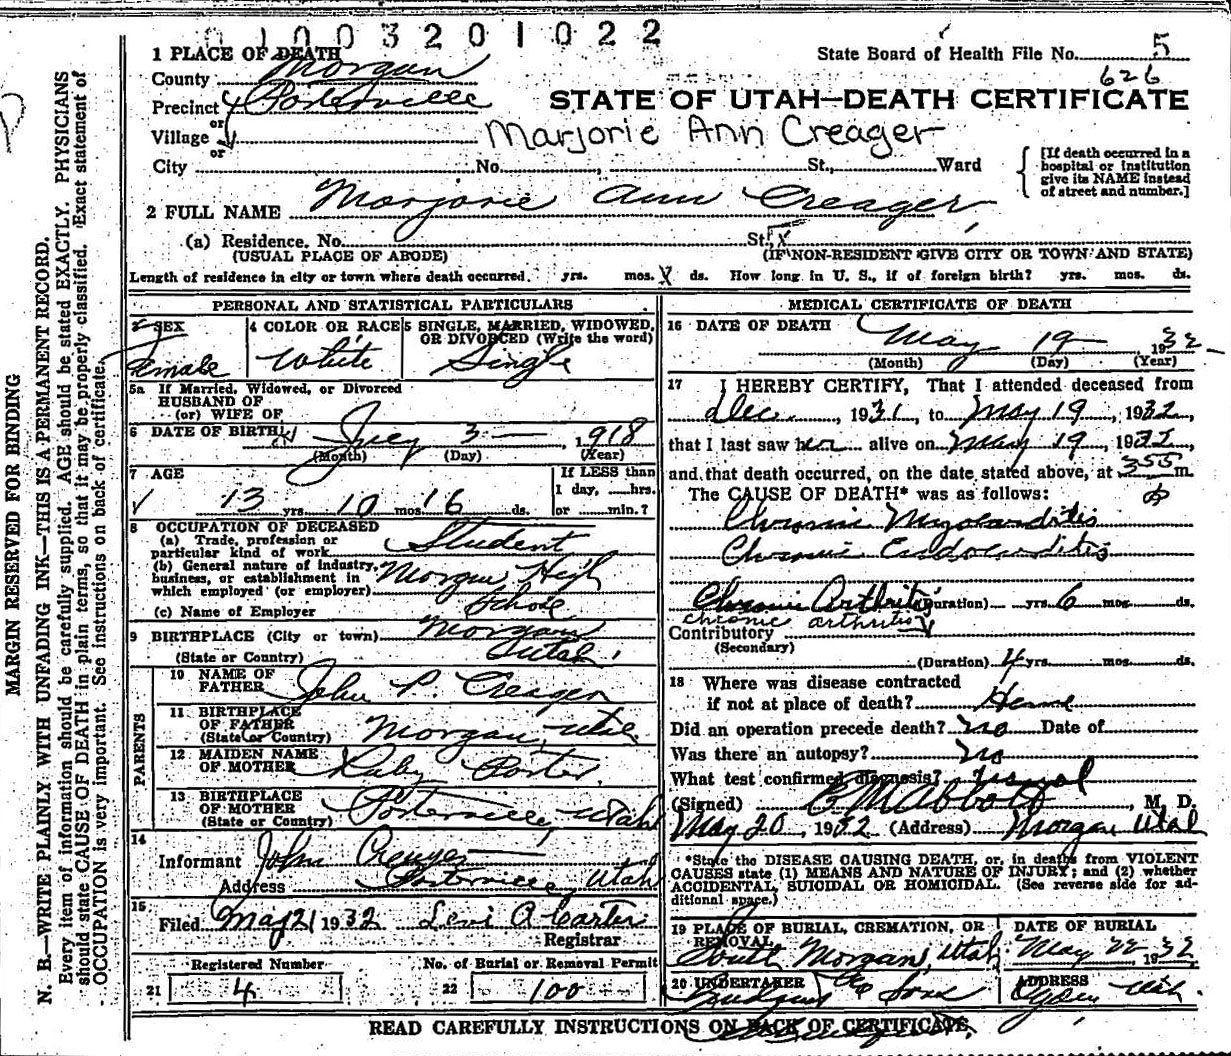 0 1 0 0 3 2 0 1 0 2 2
1 PLACE OF DEATH
State Board of Health File No. 5
County Morgan
626
Precinct Porterville
or
STATE OF UTAH—DEATH CERTIFICATE
Village
or
Marjorie Ann Creager
City No. St., Ward
[If death occurred in a
hospital or institution
give its NAME instead
of street and number.]
2 FULL NAME Marjorie Ann Creager
(a) Residence. No. St.
(USUAL PLACE OF ABODE) (IF NON-RESIDENT GIVE CITY OR TOWN AND STATE)
Length of residence in city or town where death occurred. yrs. mos. ds. How long in U. S., if of foreign birth? yrs. mos. ds.
PERSONAL AND STATISTICAL PARTICULARS
SEX 4 COLOR OR RACE 5 SINGLE, MARRIED, WIDOWED,
OR DIVORCED (Write the word)
Female White Single
5a If Married, Widowed, or Divorced
HUSBAND OF
(or) WIFE OF
6 DATE OF BIRTH July 3 1918
(Month) (Day) (Year)
7 AGE If LESS than
1 day, hrs.
13 yrs 10 mos 16 ds. or min.?
8 OCCUPATION OF DECEASED
(a) Trade, profession or
particular kind of work Student
(b) General nature of industry,
business, or establishment in
which employed (or employer) Morgan High
(c) Name of Employer School
9 BIRTHPLACE (City or town) Morgan
(State or Country) Utah
PARENTS
10 NAME OF
FATHER John P. Creager
11 BIRTHPLACE
OF FATHER
(State or Country) Morgan, Utah
12 MAIDEN NAME
OF MOTHER Ruby Porter
13 BIRTHPLACE
OF MOTHER
(State or Country) Porterville, Utah
14
Informant John Creager
Address Porterville, Utah
15
Filed May 21 1932 Levi A Carter
Registrar
Registered Number No. of Burial or Removal Permit
21 4 22 100
MEDICAL CERTIFICATE OF DEATH
16 DATE OF DEATH May 19 1932
(Month) (Day) (Year)
17 I HEREBY CERTIFY, That I attended deceased from
Dec. , 1931, to May 19, 1932,
that I last saw her alive on May 19, 1932,
and that death occurred, on the date stated above, at 355 m.
The CAUSE OF DEATH* was as follows:
Chronic Myocarditis
Chronic Endocarditis
Chronic Arthritis (Duration) yrs. 6 mos. ds.
chronic arthritis
Contributory
(Secondary)
(Duration) 4 yrs. mos. ds.
18 Where was disease contracted
if not at place of death? Home
Did an operation precede death? no Date of
Was there an autopsy? No
What test confirmed diagnosis? usual
(Signed) Abbott, M. D.
May 20, 1932 (Address) Morgan Utah
*State the DISEASE CAUSING DEATH, or, in deaths from VIOLENT
CAUSES state (1) MEANS AND NATURE OF INJURY; and (2) whether
ACCIDENTAL, SUICIDAL OR HOMICIDAL. (See reverse side for ad-
ditional space.)
19 PLACE OF BURIAL, CREMATION, OR REMOVAL DATE OF BURIAL
South Morgan, Utah May 22 1932
20 UNDERTAKER ADDRESS
Sons Ogden, Utah
READ CAREFULLY INSTRUCTIONS ON BACK OF CERTIFICATE.
MARGIN RESERVED FOR BINDING
N. B.—WRITE PLAINLY WITH UNFADING INK—THIS IS A PERMANENT RECORD.
Every item of information should be carefully supplied. AGE should be stated EXACTLY. PHYSICIANS
should state CAUSE OF DEATH in plain terms, so that it may be properly classified. Exact statement of
OCCUPATION is very important. See instructions on back of certificate.